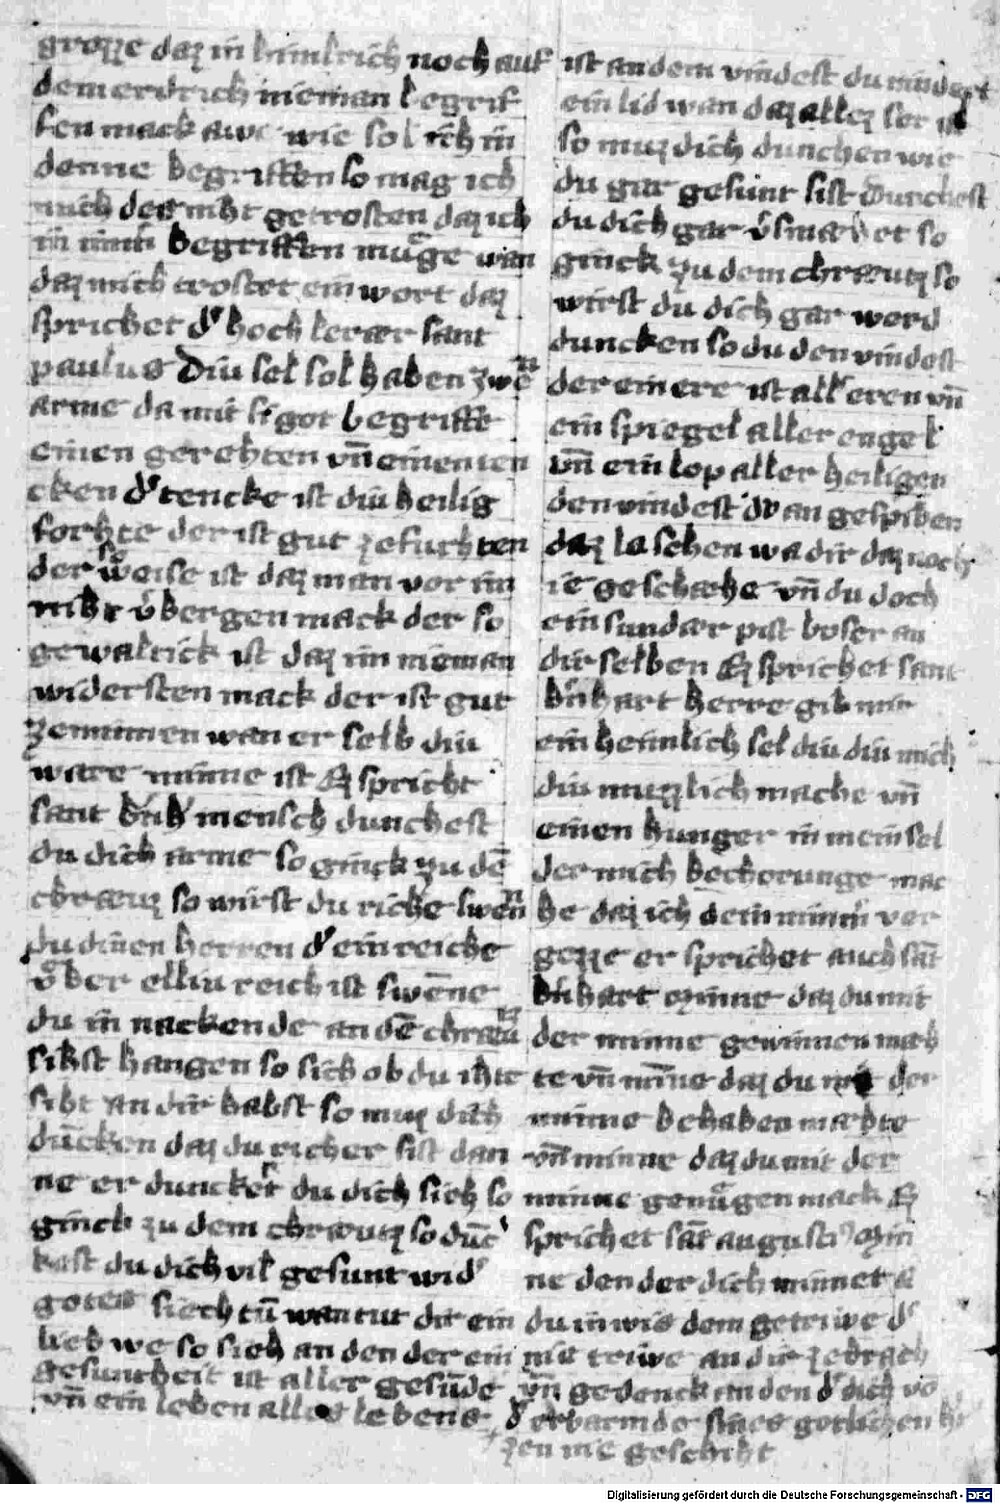 grozze daz in himlrich noch auf
dem erdrich nieman begrif
fen mack awe wie sol ich in
denne begriffen so mag ich
mich des niht getrosten daz ich
in begriffen muͤge wan
daz mich trostet ein wort daz
sprichet dˢ hoch lerær sant
paulus Diu sel sol haben zwen
arme da mit si got begriffe
einen gerehten vn̄ einen ten
cken dˢ tencke ist diu heilig
forhte der ist gut zefurhten
der so weise ist daz man vor im
niht vͦbergen mack der so
gewaltick ist daz im nieman
widersten mack der ist gut
zeminnen wan er selb diu
ware minne ist Ez spricht
sant mensch dunchest
du dich arme so ginck zu dē
chræutz so wirst du riche swen
du dinen herren dˢ ein reiche
vͦber elliu reich ist swenne
du in nackende an dē chræutz
sihst hangen so sich ob du ihte
siht an dir habst so muz dich
duncken daz du richer sist dan
ne er dunckest du dich sieh so
ginck zu dem chræutz so dunc
kest du dich vil gesunt widˢ
gotes siechtū wan tut dir ein
lied we so sieh an den der ein
gesuntheit ist aller gesunde
vn̄ ein leben alles lebens
ist an dem vindest du nindert
ein lid wan daz allez ser ist
so muz dich dunchen wie
du gar gesunt sist Dunchest
du dich gar vˢsmahet so
ginck zu dem chræutz so
wirst du dich gar werd
duncken so du den vindest
der ein ere ist allˢ eren vn̄
ein spiegel aller engel
vn̄ ein lop aller heiligen
den vindest du an gespiben
daz la sehen wa dir daz noch
ie geschæhe vn̄ du doch
ein sundær pist boser an
dir selben Ez sprichet sant
bn̄hart herre gib mir
ein heimlich sel diu diu mich
diu muzlich mache vn̄
einen hunger in mein sel
der mich bechorunge mac
he daz ich dein minne ver
gezze er sprichet auch sāt
bn̄hart minne daz du mit
der minne gewinnen mæh
te vn̄ minne daz du mit der
minne behaben mæhte
vn̄ minne daz du mit der
minne genuͤgen mack Ez
sprichet sāt augusti min
ne den der dich minnet e
du in wis dem getriwe dˢ
mit triwe an dir zebrach
vn̄ gedenck an den dˢ dich vō
dˢ erbarmde sines gotlichen
zen nie geschiht
Digitalisierung gefördert durch die Deutsche Forschungsgemeinschaft - DFG